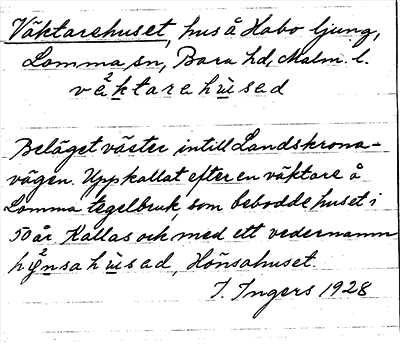 Väktarehuset, hus å Habo ljung,
Lomma sn, Bara hd, Malm. l.
väktarahùsad
Beläget väster intill Landskrona-
vägen. Uppkallat efter en väktare å
Lomma tegelbruk, som bebodde huset i
50 år. Kallas och med ett vedernamn
hønsahùsad, Hönsahuset.
I. Ingers 1928